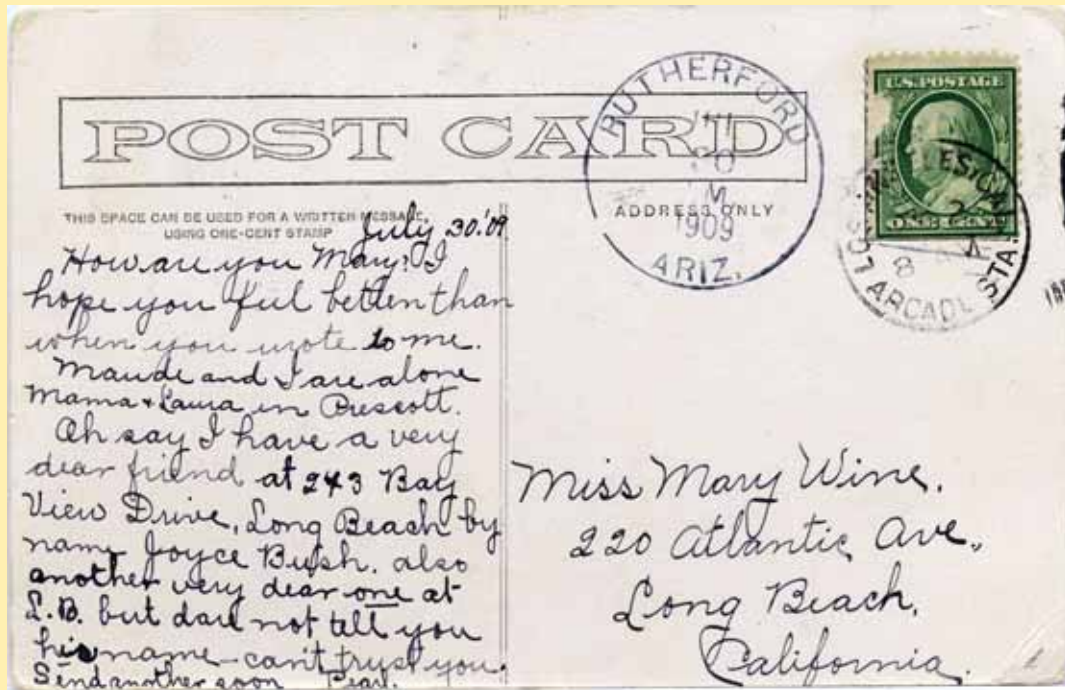 POST CARD
THIS SPACE CAN BE USED FOR A WRITTEN MESSAGE,
USING ONE-CENT STAMP
ADDRESS ONLY
RUTHERFORD
1909
ARIZ.
U.S. POSTAGE
LOS ANGELES, CAL.
8
ARCADE STA.
July 30 '09
How are you Mary? I
hope you ful better than
when you wrote to me.
Maude and I are alone
Mama + Laura in Prescott.
Oh say I have a very
dear friend at 243 Bay
View Drive, Long Beach by
name Joyce Bush. also
another very dear one at
L.B. but dare not tell you
his name - can't trust you.
Send another soon
Miss Mary Wine.
220 Atlantic Ave.,
Long Beach,
California.